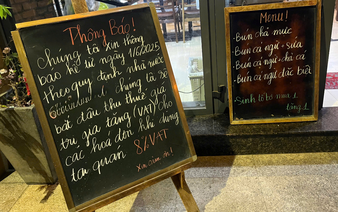 Thông Báo!
Chúng tã xin thông
báo kể từ ngày 1/6/2025
theo quy định nhà nước
chúng tã sẽ
bắt đầu thu thuế giá
trị gia tăng (VAT) cho
các hoá đơn khi dùng
tại quán 8% VAT
Xin cảm ơn!
Menu!
- Bún chả mực
- Bún cá ngừ - sứa
- Bún cá ngừ - chả cá
- Bún cá ngừ đặc biệt
- Sinh tố bơ